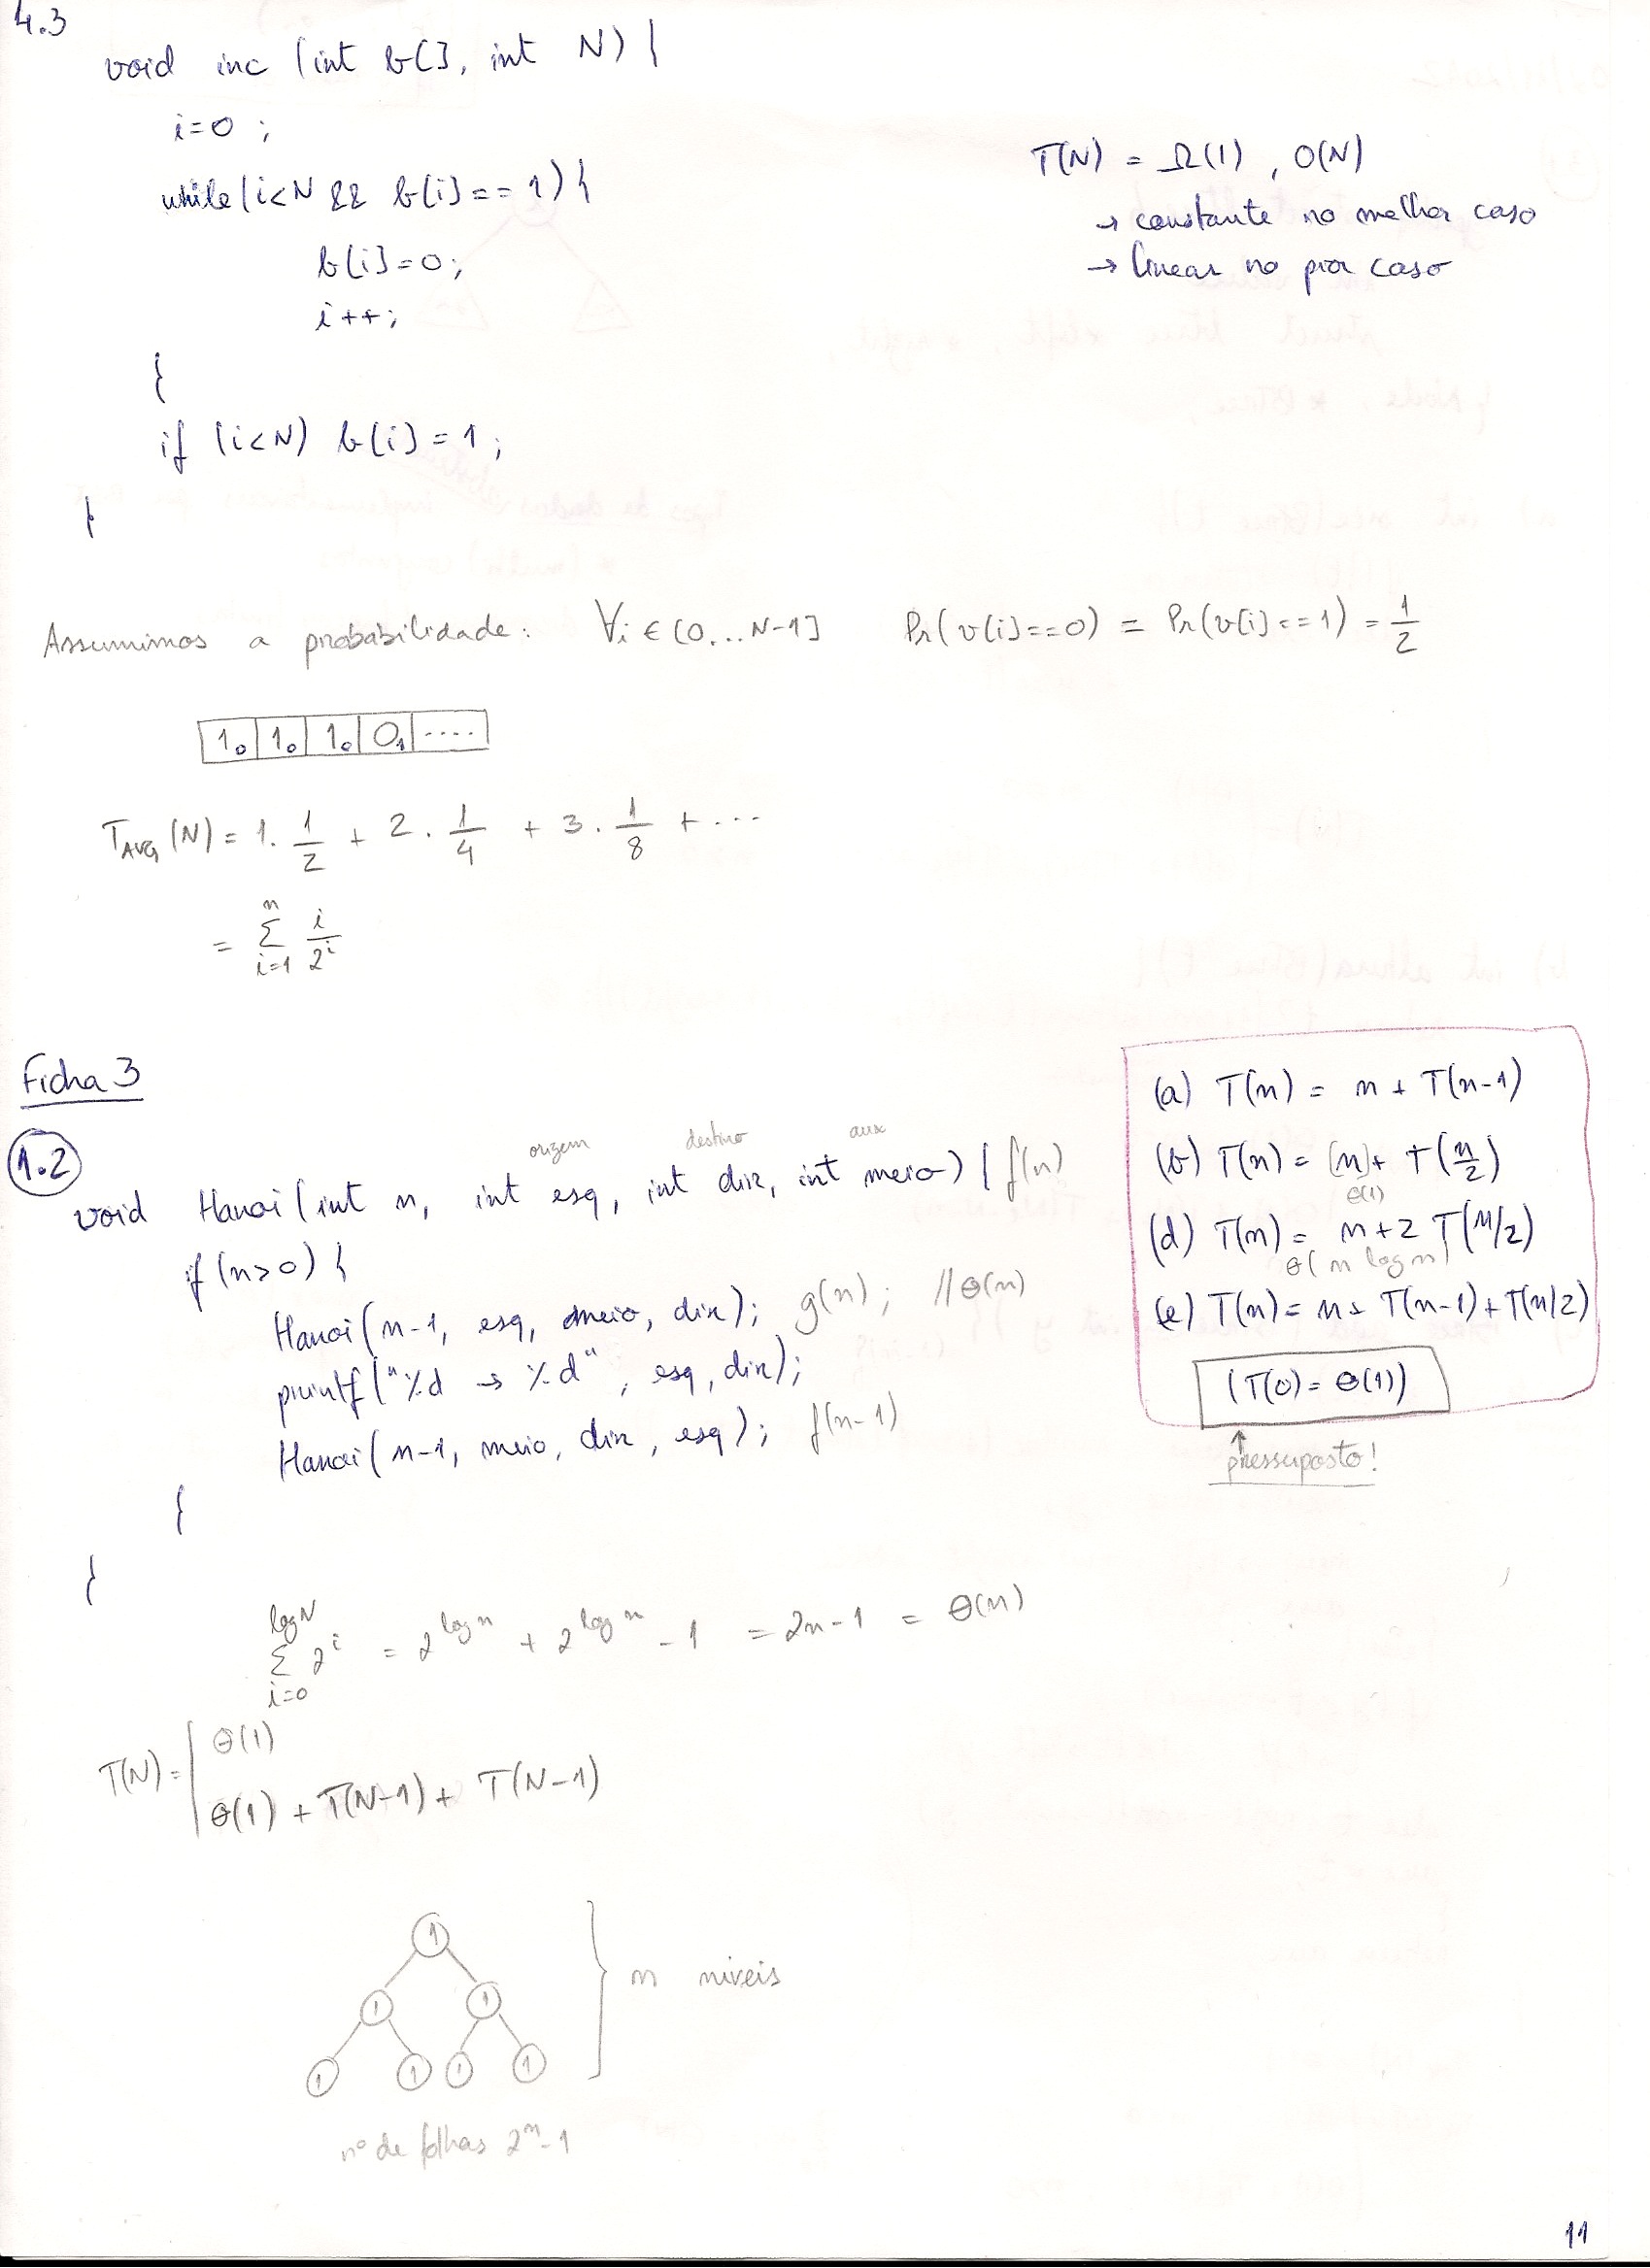 4.3
void inc (int b[], int N) {
i=0 ;
while (i<N && b[i]==1) {
b[i]=0;
i++;
}
if (i<N) b[i]=1;
}
T(N) = Ω(1) , O(N)
→ constante no melhor caso
→ linear no pior caso
Assumimos a probabilidade: ∀i ∈ [0...N-1] Pr(v[i]==0) = Pr(v[i]==1) = 1/2
1 0 1 0 1 0 0 1 ....
T_AVG (N) = 1 . 1/2 + 2 . 1/4 + 3 . 1/8 + ...
= Σ_{i=1}^{n} i/2^i
Ficha 3
1.2
origem destino aux
void Hanoi (int n, int esq, int dir, int meio) { f(n)
if (n>0) {
Hanoi (n-1, esq, meio, dir); g(n); //θ(n)
printf ("%d → %d", esq, dir);
Hanoi (n-1, meio, dir, esq); f(n-1)
}
}
(a) T(n) = n + T(n-1)
(b) T(n) = [n] + T(n/2)
θ(1)
(d) T(n) = n + 2 T(n/2)
θ(n log n)
(e) T(n) = n + T(n-1) + T(n/2)
(T(0) = θ(1))
↑
pressuposto!
Σ_{i=0}^{log N} 2^i = 2^{log n} + 2^{log n} - 1 = 2n-1 = θ(n)
T(N) = | θ(1)
| θ(1) + T(N-1) + T(N-1)
1
1 1
1 1 1 1
n níveis
nº de folhas 2^n-1
11